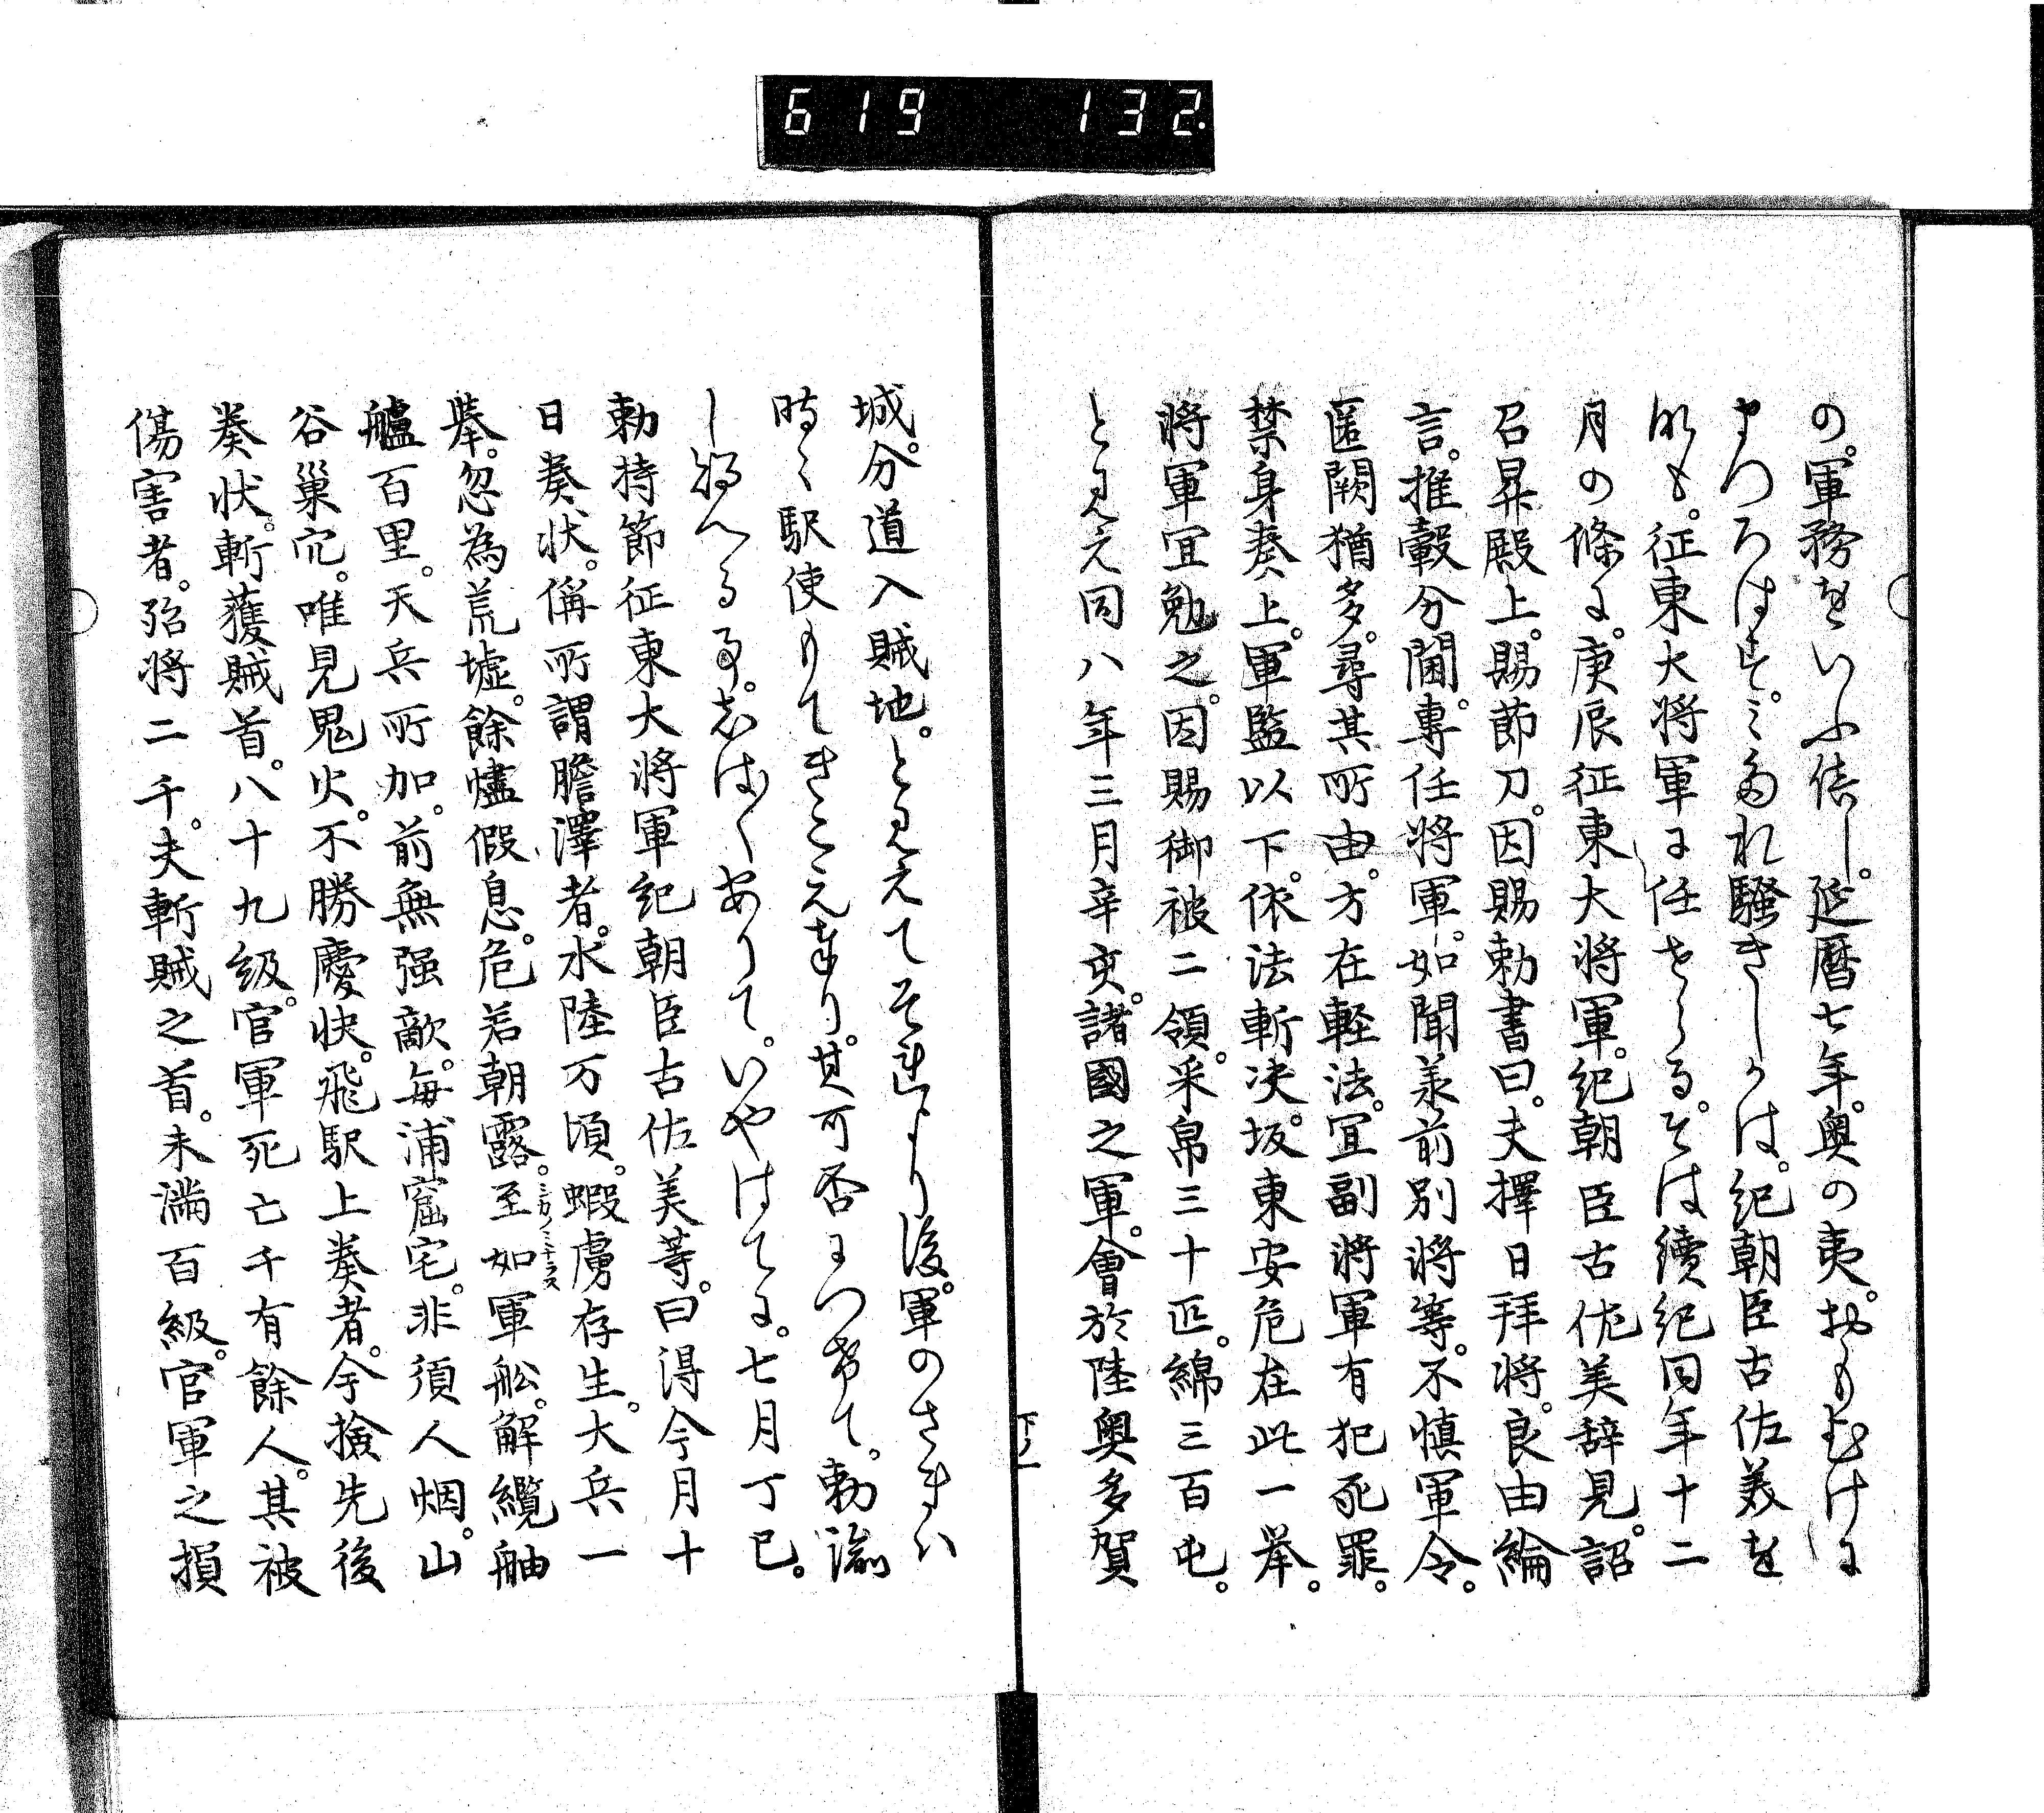 619 132
の。軍務をいふ侍し。延暦七年。奥の夷。おもむけに
まつろはす。みたれ騒きしかは。紀朝臣古佐美を
征東大将軍に任せらる。そは續紀同年十二
月の條に。庚辰征東大将軍。紀朝臣古佐美辞見。詔
召昇殿上。賜節刀。因賜勅書曰。夫擇日拜将。良由綸
言。推轂分閫。専任将軍。如聞羕前別将等。不慎軍令。
匿闕猶多。尋其所由。方在軽法。宜副将軍有犯死罪。
禁身奏上。軍監以下。依法斬决。坂東安危在此一挙。
将軍宜勉之。因賜御被二領。采帛三十疋。綿三百屯。
と見え同八年三月辛亥。諸國之軍。會於陸奥多賀
下ノ一
城。分道入賊地。と見えてそれより後。軍のさまハ
時〻駅使もてきこえ奉り。其可否につけて。勅諭
し給へる事。志は〱ありて。いやはてに。七月丁巳。
勅持節征東大将軍紀朝臣古佐美等。曰得今月十
日奏状。偁所謂膽澤者。水陸万頃。蝦虜存生。大兵一
挙。忽為荒墟。餘燼假息。危若朝露。至如軍舩。解纜舳
艫百里。天兵所加。前無强敵。毎浦窟宅。非須人烟。山
谷巣穴。唯見鬼火。不勝慶快。飛駅上奏者。今撿先後
奏状。斬獲賊首。八十九級。官軍死亡千有餘人。其被
傷害者。殆将二千。夫斬賊之首。未満百級。官軍之損